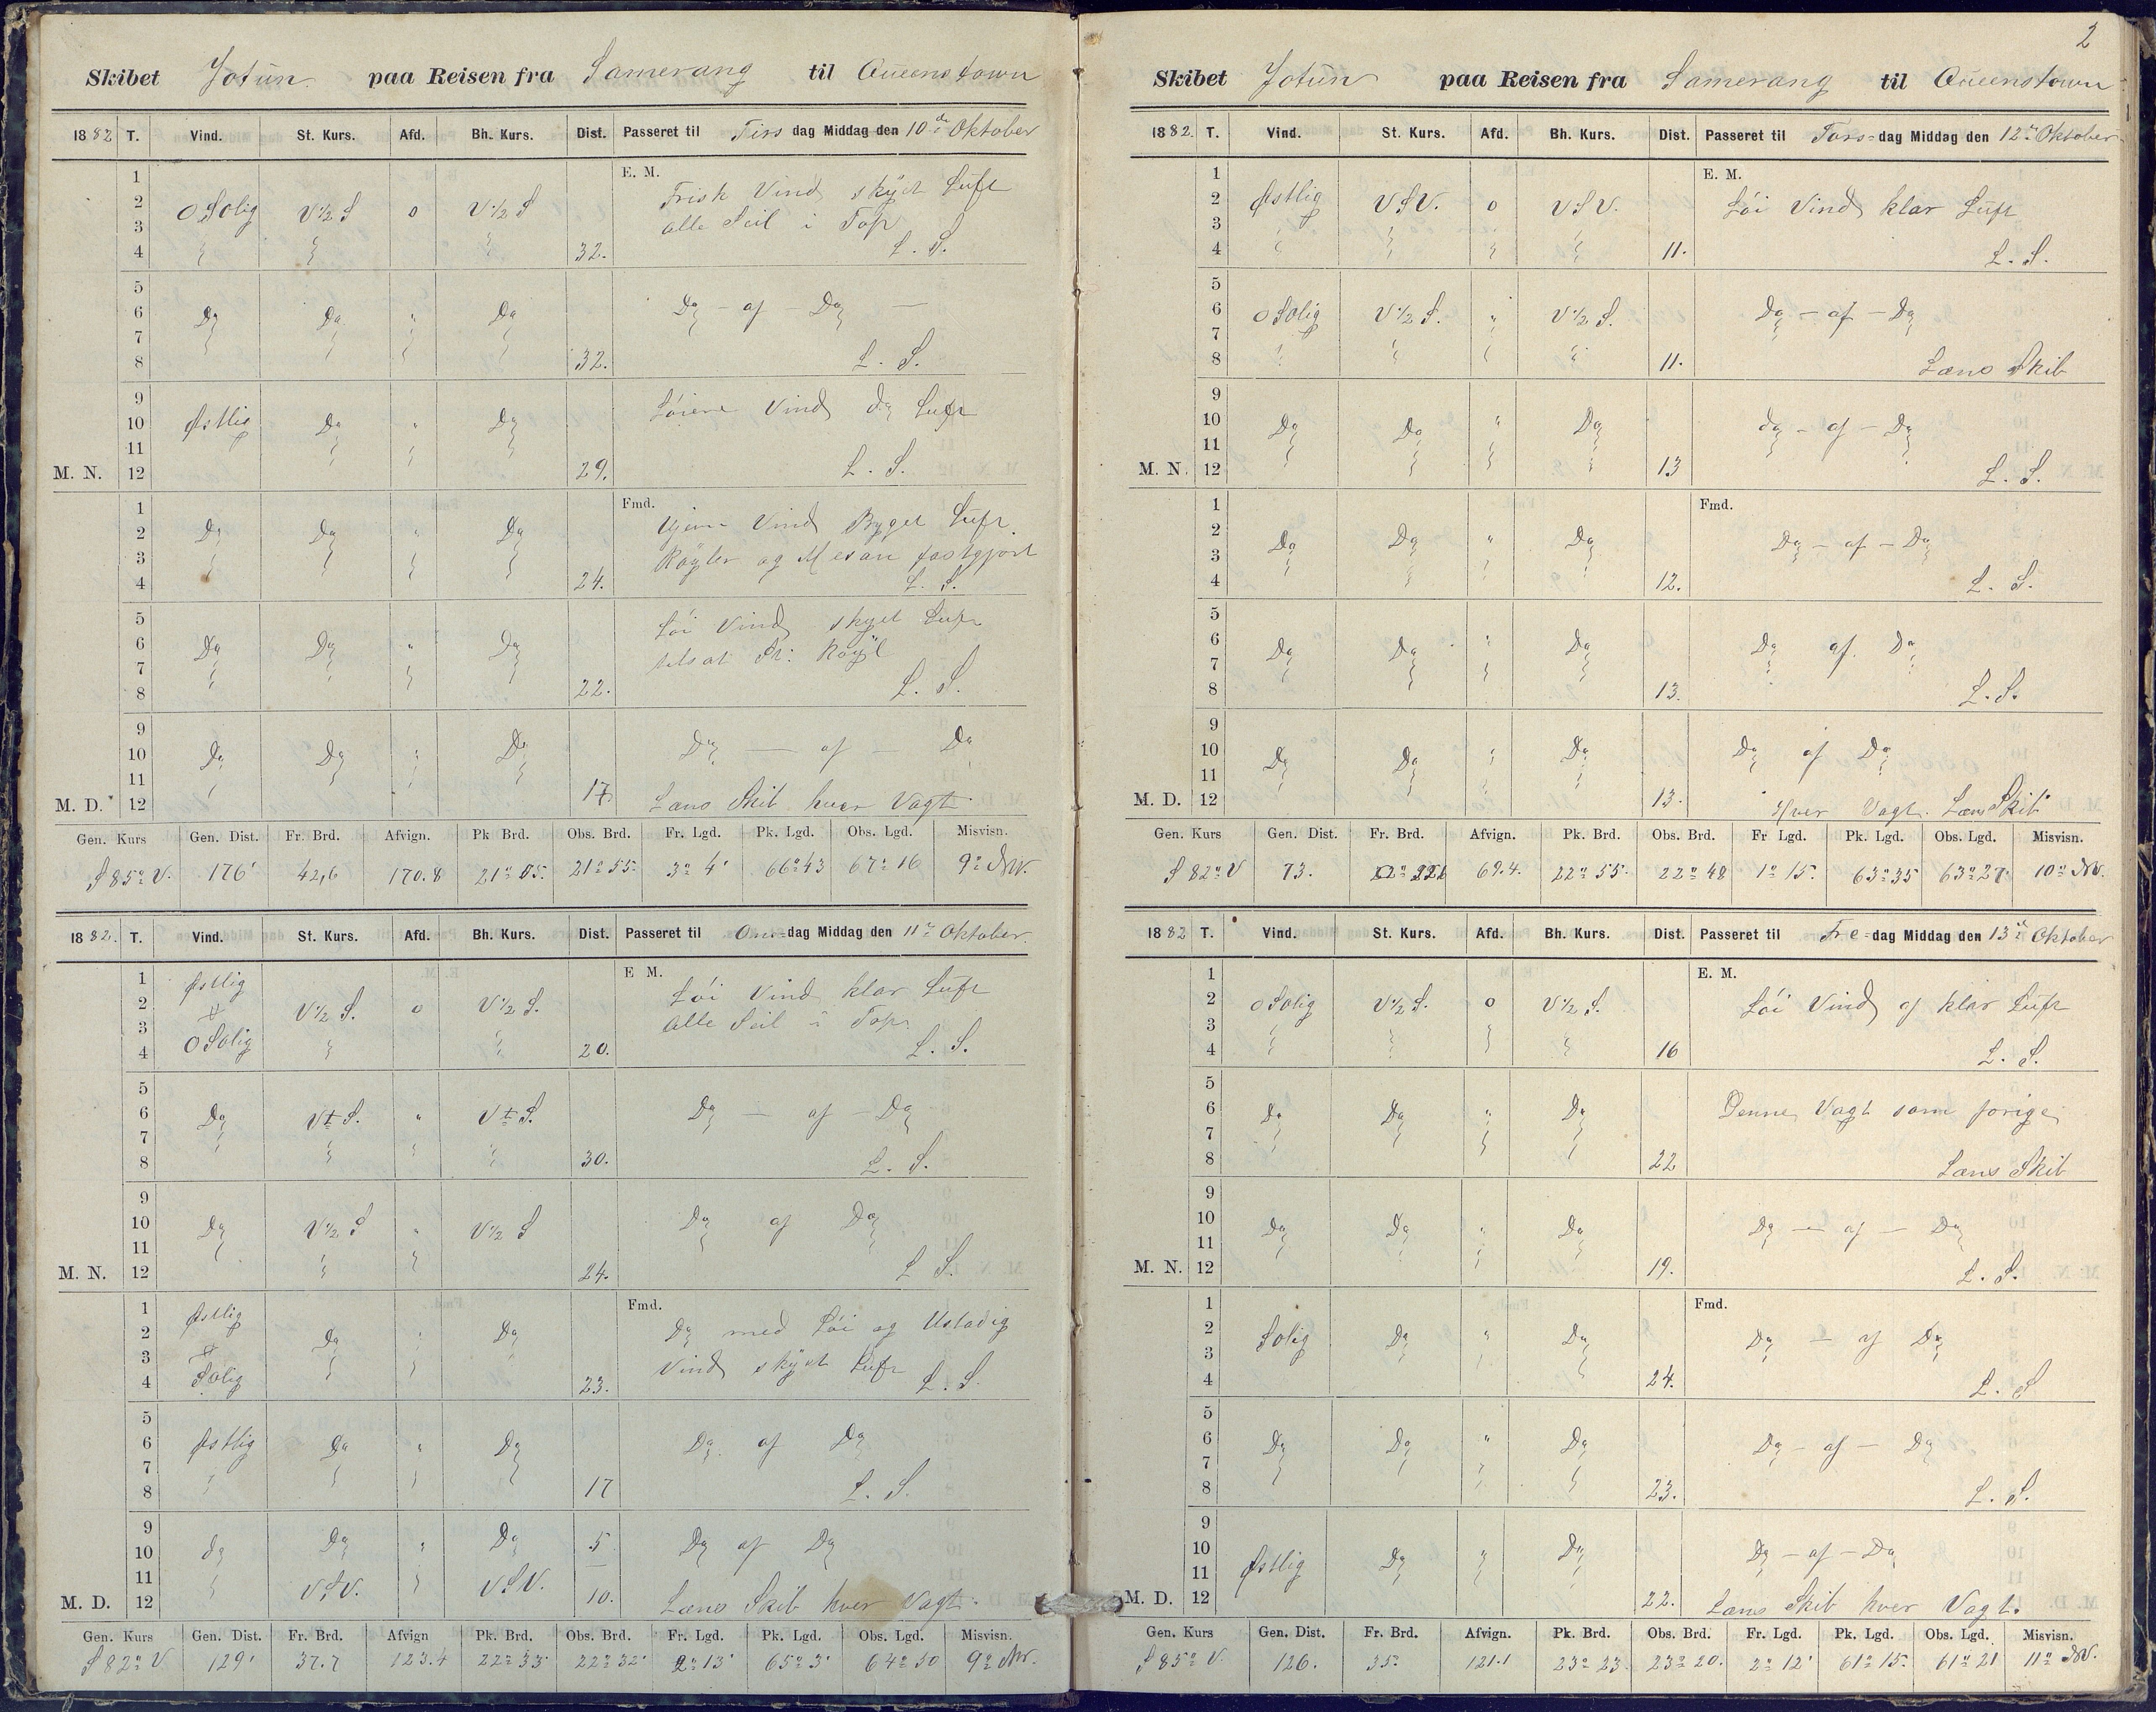 Skibet Jotun paa Reisen fra Samerang til Queenstown
1882 T. Vind. St. Kurs. Afd. Bh. Kurs. Dist. Passeret til Tirs dag Middag den 10de Oktober
1 E. M. Frisk Vind skyet Luft
2 OSOlig V½S 0 V½S alle Seil i Top
3
4 32. L. S.
5
6 Do Do " Do Do - af - Do
7
8 32. L. S.
9 Løiere Vind do Luft
10 Østlig Do " Do
11
M. N. 12 29. L. S.
1 Fmd. Ujevn Vind Byget Luft.
2 Do Do " Do
3 Røyler og Mesan fastgjort
4 24. L. S.
5 Løi Vind skyet Luft
6 Do Do " Do tilsat St: Røyl
7
8 22. L. S.
9
10 Do Do " Do Do - af - Do
11
M. D. 12 17. Læns Skib hver Vagt.
Gen. Kurs Gen. Dist. Fr. Brd. Afvign. Pk Brd. Obs. Brd. Fr. Lgd. Pk. Lgd. Obs. Lgd. Misvisn.
S 85° V. 176' 42,6 170.8 21° 05. 21° 55 3° 4' 66° 43 67° 16 9° NV.
1882. T. Vind. St. Kurs. Afd. Bh. Kurs. Dist. Passeret til Ons-dag Middag den 11te Oktober.
1 Østlig E M. Løi Vind klar Luft
2 V½S. 0 V½S. alle Seil i Top.
3
4 OSOlig 20. L. S.
5
6 Do Vt S. " Vt S. Do - af - Do
7
8 30. L. S.
9
10 Do V½S " V½S Do af Do
11
M. N. 12 24. L. S.
1 Østlig Fmd. Do med Løi og Ustadig
2 Do Do
3 Vind skyet Luft
4 Solig 23. L. S.
5
6 Østlig Do " Do Do af Do
7
8 17 L. S.
9
10 do Do " Do 5 Do af Do
11
M. D. 12 VSV. VSV. 10. Læns Skib hver Vagt.
Gen. Kurs Gen. Dist. Fr. Brd. Afvign Pk. Brd. Obs. Brd. Fr. Lgd. Pk. Lgd. Obs. Lgd. Misvisn.
S 82° V 129' 37.7 123.4 22° 33' 22° 32' 2° 13' 65° 3' 64° 50 9° NV.
2
Skibet Jotun paa Reisen fra Samerang til Queenstown
1882. T. Vind. St. Kurs. Afd. Bh. Kurs. Dist. Passeret til Tors-dag Middag den 12te Oktober
1 E. M.
2 Østlig VSV. 0 VSV. Løi Vind klar Luft
3
4 11. L. S.
5
6 OSOlig V½S. " V½S. Do - af - Do
7
8 11. Læns Skib
9
10 Do Do " Do do - af - Do
11
M. N. 12 13 L. S.
1 Fmd.
2 Do Do " Do Do - af - Do
3
4 12. L. S.
5
6 Do Do " Do Do af Do
7
8 13. L. S.
9
10 Do Do " Do Do af Do
11
M. D. 12 13. Hver Vagt. Læns Skib
Gen. Kurs Gen. Dist. Fr. Brd. Afvign. Pk. Brd. Obs. Brd. Fr Lgd. Pk. Lgd. Obs. Lgd. Misvisn.
S 82° V 73. 69.4. 22° 55. 22° 48 1° 15. 63° 35 63° 27. 10° NV.
1882 T. Vind. St. Kurs. Afd. Bh. Kurs. Dist. Passeret til Fre-dag Middag den 13de Oktober
1 E. M.
2 OSOlig V½S. 0 V½S. Løi Vind af klar Luft
3
4 16 L. S.
5
6 Do Do " Do Denne Vagt som forige
7
8 22 Læns Skib
9
10 Do Do " Do Do - af - Do
11
M. N. 12 19. L. S.
1 Fmd.
2 Solig Do " Do Do - af Do
3
4 24. L. S
5
6 Do Do " Do Do - af - Do
7
8 23. L. S.
9
10 Østlig Do " Do Do - af - Do
11
M. D. 12 22. Læns Skib hver Vagt.
Gen. Kurs Gen. Dist. Fr. Brd. Afvign. Pk. Brd. Obs. Brd. Fr. Lgd. Pk. Lgd. Obs. Lgd. Misvisn.
S 85° V. 126. 35. 121.1 23° 23. 23° 20. 2° 12' 61° 15. 61° 21 11° NV.